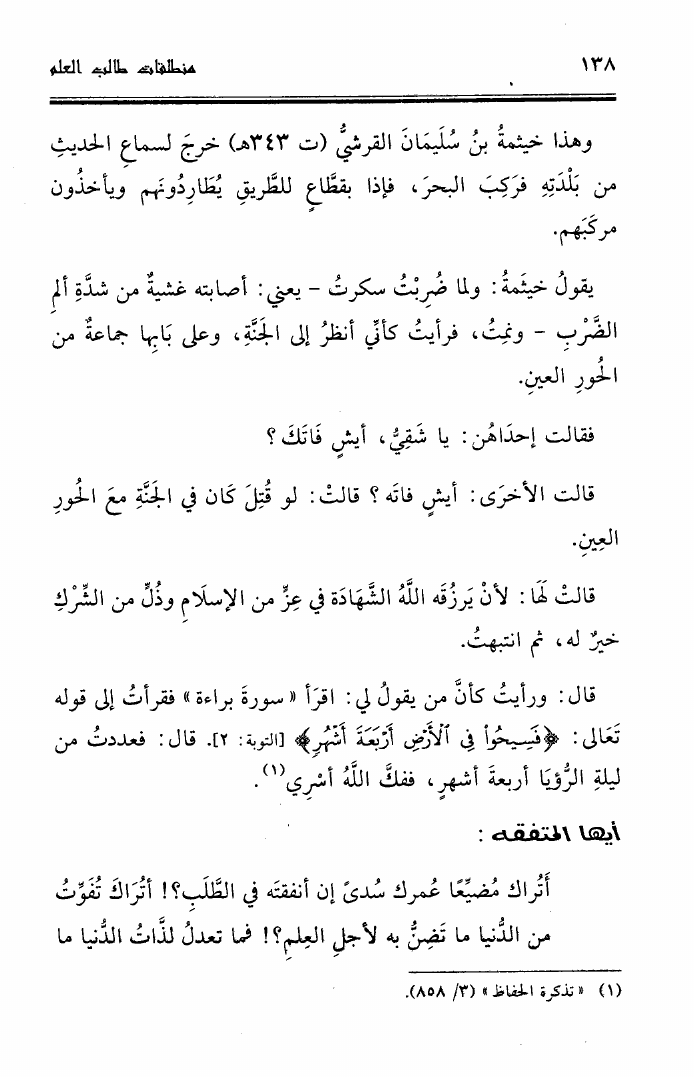 ١٣٨ منطلقات طالب العلم
وهذا خيثمةُ بنُ سُلَيمَانَ القرشيُّ (ت ٣٤٣هـ) خرجَ لسماعِ الحديثِ
من بَلْدَتِهِ فرَكِبَ البحرَ، فإذا بقطَّاعٍ للطَّريقِ يُطَارِدُونَهم ويأخذُون
مركَبَهم.
يقولُ خيثَمةُ: ولما ضُرِبْتُ سكرتُ – يعني: أصابته غشيةٌ من شدَّةِ ألمِ
الضَّرْبِ – ونمتُ، فرأيتُ كأنِّي أنظرُ إلى الجَنَّةِ، وعلى بَابِها جماعةٌ من
الحُورِ العينِ.
فقالت إحدَاهُن: يا شَقِيُّ، أيشٍ فَاتَكَ؟
قالت الأخرَى: أيشٍ فاتَه؟ قالتْ: لو قُتِلَ كَان في الجَنَّةِ معَ الحُورِ
العِينِ.
قالتْ لَهَا: لأنْ يَرزُقَه اللَّهُ الشَّهَادَة في عِزٍّ من الإسلَامِ وذُلٍّ من الشِّرْكِ
خيرٌ له، ثم انتبهتُ.
قال: ورأيتُ كأنَّ من يقولُ لي: اقرَأ «سورةَ براءة» فقرأتُ إلى قوله
تَعَالى: ﴿فَسِيحُواْ فِى ٱلۡأَرۡضِ أَرۡبَعَةَ أَشۡهُرٖ﴾ [التوبة: ٢]. قال: فعددتُ من
ليلةِ الرُّؤيَا أربعةَ أشهرٍ، ففكَّ اللَّهُ أسْرِي(١).
أيها المتفقه:
أتُراك مُضيِّعًا عُمرك سُدىً إن أنفقتَه في الطَّلَبِ؟! أتُرَاكَ تُفَوِّتُ
من الدُّنيا ما تَضِنُّ به لأجلِ العِلمِ؟! فما تعدلُ لذَّاتُ الدُّنيا ما
(١) «تذكرة الحفاظ» (٣/ ٨٥٨).